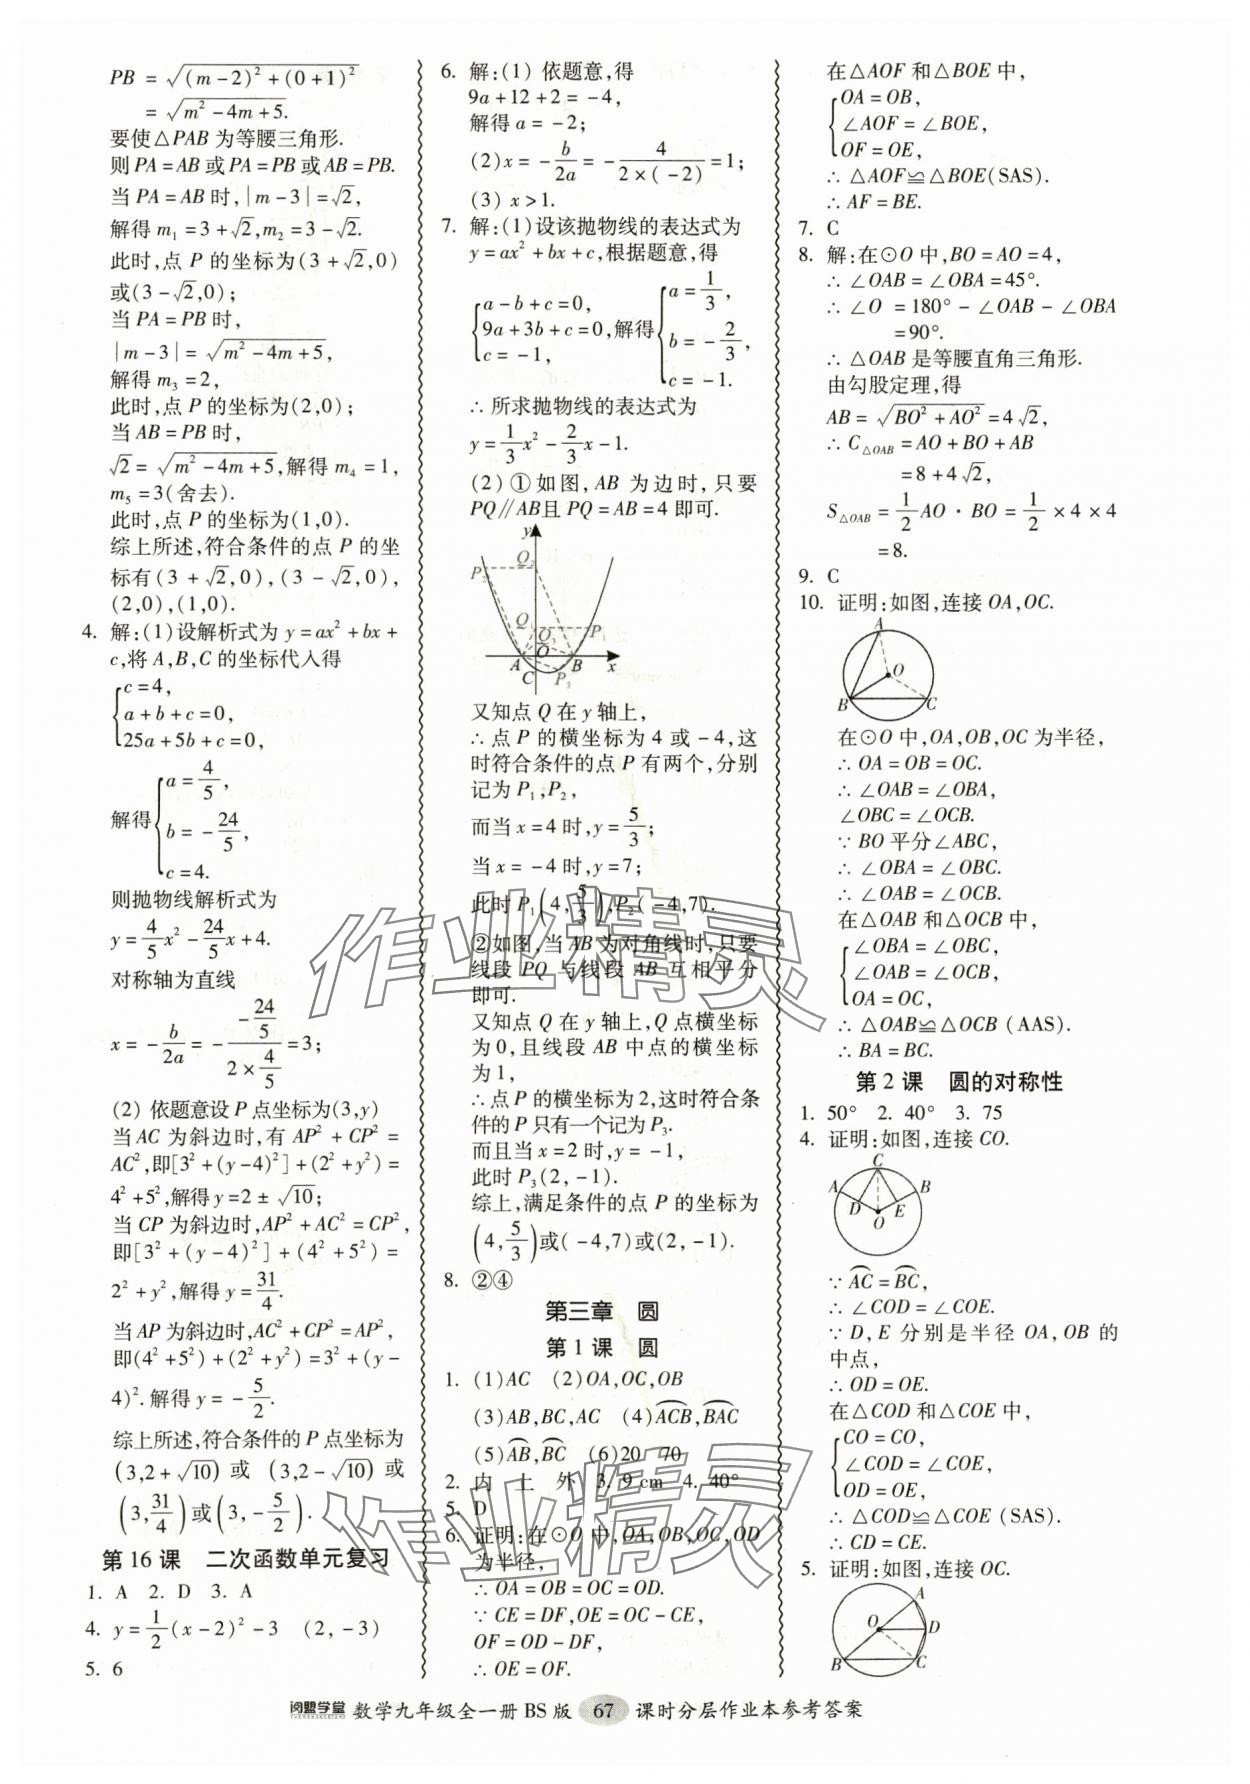 PB = √((m-2)²+(0+1)²)
= √(m²-4m+5).
要使△PAB 为等腰三角形.
则 PA=AB 或 PA=PB 或 AB=PB.
当 PA=AB 时,|m-3|=√2,
解得 m₁=3+√2,m₂=3-√2.
此时,点 P 的坐标为(3+√2,0)
或(3-√2,0);
当 PA=PB 时,
|m-3|=√(m²-4m+5),
解得 m₃=2,
此时,点 P 的坐标为(2,0);
当 AB=PB 时,
√2=√(m²-4m+5),解得 m₄=1,
m₅=3(舍去).
此时,点 P 的坐标为(1,0).
综上所述,符合条件的点 P 的坐
标有(3+√2,0),(3-√2,0),
(2,0),(1,0).
4. 解:(1)设解析式为 y=ax²+bx+
c,将 A,B,C 的坐标代入得
{c=4,
a+b+c=0,
25a+5b+c=0,
解得{a=4/5,
b=-24/5,
c=4.
则抛物线解析式为
y=4/5x²-24/5x+4.
对称轴为直线
x=-b/2a=-(-24/5)/(2×4/5)=3;
(2) 依题意设 P 点坐标为(3,y)
当 AC 为斜边时,有 AP²+CP²=
AC²,即[3²+(y-4)²]+(2²+y²)=
4²+5²,解得 y=2±√10;
当 CP 为斜边时,AP²+AC²=CP²,
即[3²+(y-4)²]+(4²+5²)=
2²+y²,解得 y=31/4.
当 AP 为斜边时,AC²+CP²=AP²,
即(4²+5²)+(2²+y²)=3²+(y-
4)².解得 y=-5/2.
综上所述,符合条件的 P 点坐标为
(3,2+√10)或(3,2-√10)或
(3,31/4)或(3,-5/2).
第 16 课 二次函数单元复习
1. A 2. D 3. A
4. y=1/2(x-2)²-3 (2,-3)
5. 6
6. 解:(1) 依题意,得
9a+12+2=-4,
解得 a=-2;
(2)x=-b/2a=-4/(2×(-2))=1;
(3) x>1.
7. 解:(1)设该抛物线的表达式为
y=ax²+bx+c,根据题意,得
{a-b+c=0,
9a+3b+c=0,
c=-1,
解得{a=1/3,
b=-2/3,
c=-1.
∴ 所求抛物线的表达式为
y=1/3x²-2/3x-1.
(2) ①如图,AB 为边时,只要
PQ∥AB且 PQ=AB=4 即可.
y
Q₂
P₂
Q₁
P₁
Q₃
O
A
B
x
C
P₃
又知点 Q 在 y 轴上,
∴ 点 P 的横坐标为 4 或 -4,这
时符合条件的点 P 有两个,分别
记为 P₁,P₂,
而当 x=4 时,y=5/3;
当 x=-4 时,y=7;
此时 P₁(4,5/3),P₂(-4,7).
②如图,当 AB 为对角线时,只要
线段 PQ 与线段 AB 互相平分
即可.
又知点 Q 在 y 轴上,Q 点横坐标
为 0,且线段 AB 中点的横坐标
为 1,
∴ 点 P 的横坐标为 2,这时符合条
件的 P 只有一个记为 P₃.
而且当 x=2 时,y=-1,
此时 P₃(2,-1).
综上,满足条件的点 P 的坐标为
(4,5/3)或(-4,7)或(2,-1).
8. ②④
第三章 圆
第 1 课 圆
1. (1)AC (2)OA,OC,OB
(3)AB,BC,AC (4)⌒ACB,⌒BAC
(5)⌒AB,⌒BC (6)20 70
2. 内 上 外 3. 9 cm 4. 40°
5. D
6. 证明:在⊙O 中,OA,OB,OC,OD
为半径,
∴ OA=OB=OC=OD.
∵ CE=DF,OE=OC-CE,
OF=OD-DF,
∴ OE=OF.
在△AOF 和△BOE 中,
{OA=OB,
∠AOF=∠BOE,
OF=OE,
∴ △AOF≌△BOE(SAS).
∴ AF=BE.
7. C
8. 解:在⊙O 中,BO=AO=4,
∴ ∠OAB=∠OBA=45°.
∴ ∠O =180°-∠OAB-∠OBA
=90°.
∴ △OAB 是等腰直角三角形.
由勾股定理,得
AB=√(BO²+AO²)=4√2,
∴ C△OAB=AO+BO+AB
=8+4√2,
S△OAB=1/2AO·BO=1/2×4×4
=8.
9. C
10. 证明:如图,连接 OA,OC.
A
O
B
C
在⊙O 中,OA,OB,OC 为半径,
∴ OA=OB=OC.
∴ ∠OAB=∠OBA,
∠OBC=∠OCB.
∵ BO 平分∠ABC,
∴ ∠OBA=∠OBC.
∴ ∠OAB=∠OCB.
在△OAB 和△OCB 中,
{∠OBA=∠OBC,
∠OAB=∠OCB,
OA=OC,
∴ △OAB≌△OCB (AAS).
∴ BA=BC.
第 2 课 圆的对称性
1. 50° 2. 40° 3. 75
4. 证明:如图,连接 CO.
C
A
B
D
E
O
∵ ⌒AC=⌒BC,
∴ ∠COD=∠COE.
∵ D,E 分别是半径 OA,OB 的
中点,
∴ OD=OE.
在△COD 和△COE 中,
{CO=CO,
∠COD=∠COE,
OD=OE,
∴ △COD≌△COE (SAS).
∴ CD=CE.
5. 证明:如图,连接 OC.
A
O
D
B
C
作业精灵
作业精灵
阅盟学堂 数学九年级全一册 BS 版 67 课时分层作业本参考答案